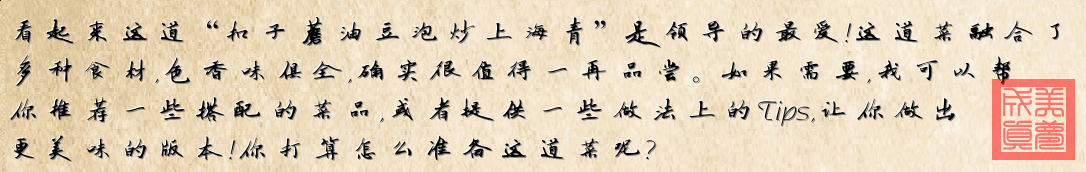 看起来这道“扣子蘑油豆泡炒上海青”是领导的最爱!这道菜融合了
多种食材,色香味俱全,确实很值得一再品尝。如果需要,我可以帮
你推荐一些搭配的菜品,或者提供一些做法上的Tips,让你做出
更美味的版本!你打算怎么准备这道菜呢?
美梦成真